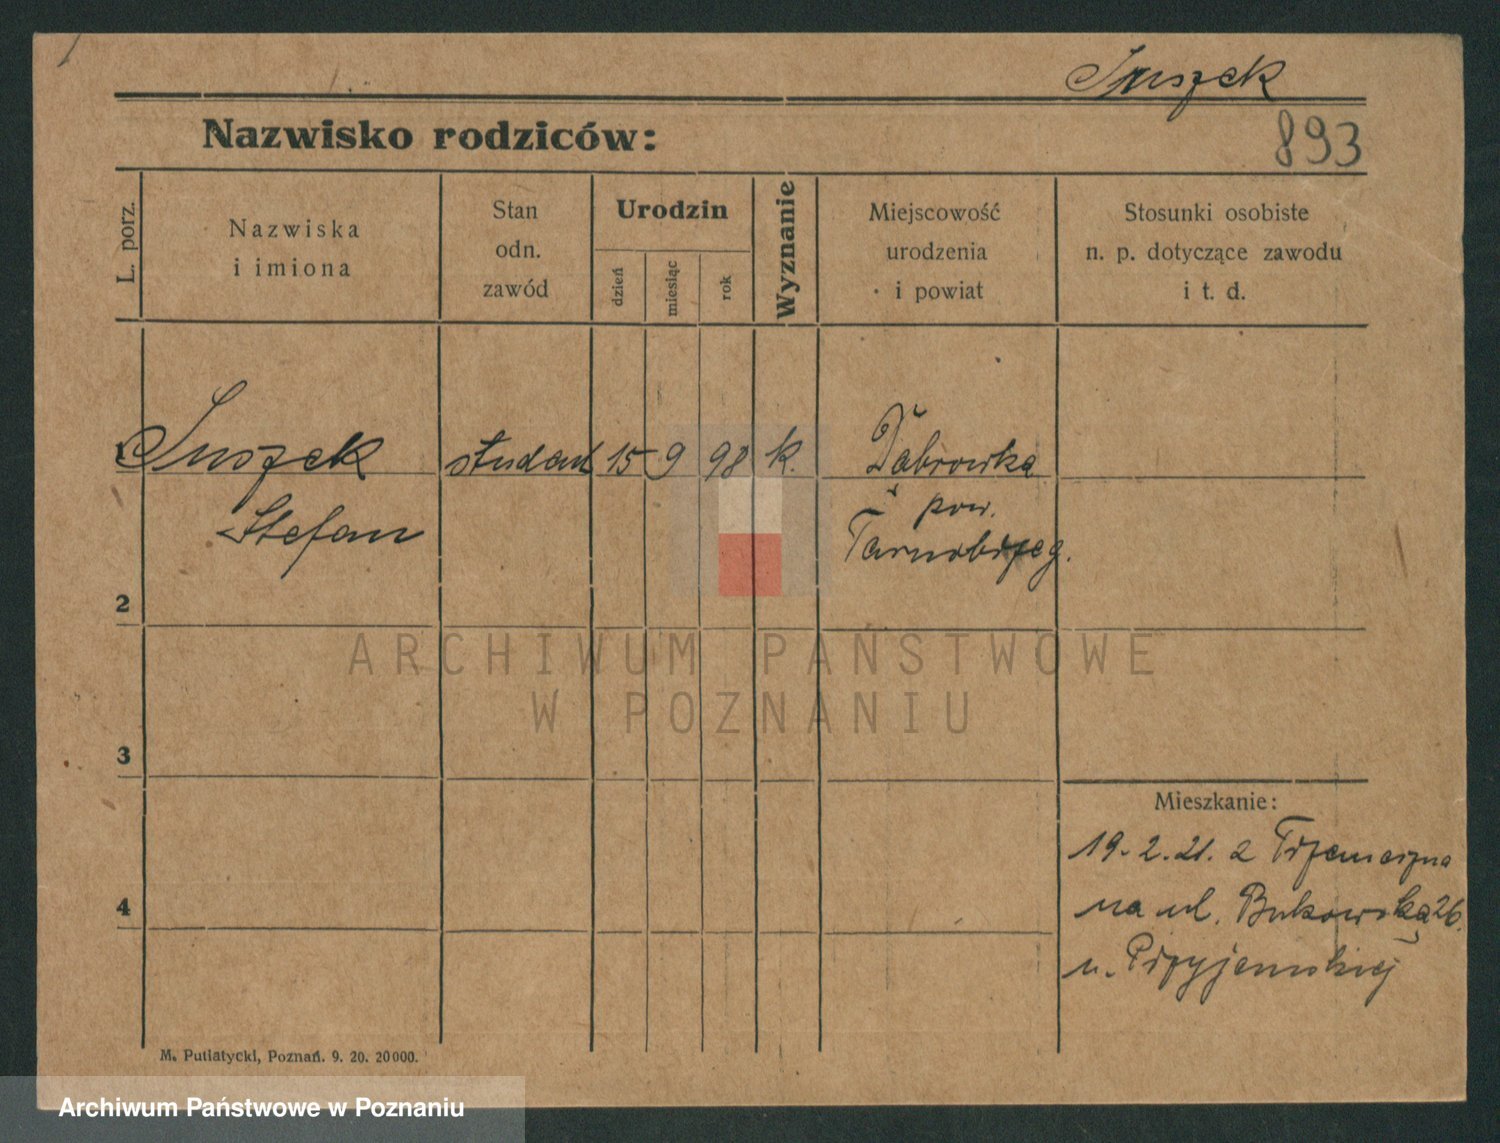 Suszek
893
Nazwisko rodziców:
L. porz.
Nazwiska
i imiona
Stan
odn.
zawód
Urodzin
dzień
miesiąc
rok
Wyznanie
Miejscowość
urodzenia
i powiat
Stosunki osobiste
n. p. dotyczące zawodu
i t. d.
1 Suszek student 15 9 98 k. Dąbrowka
Stefan pow.
Tarnobrzeg.
2
ARCHIWUM PAŃSTWOWE
W POZNANIU
3
Mieszkanie:
19. 2. 21. z
4
na ul. Bukowską 26.
u. Przyjemskiej
M. Putiatycki, Poznań. 9. 20. 20000.
Archiwum Państwowe w Poznaniu